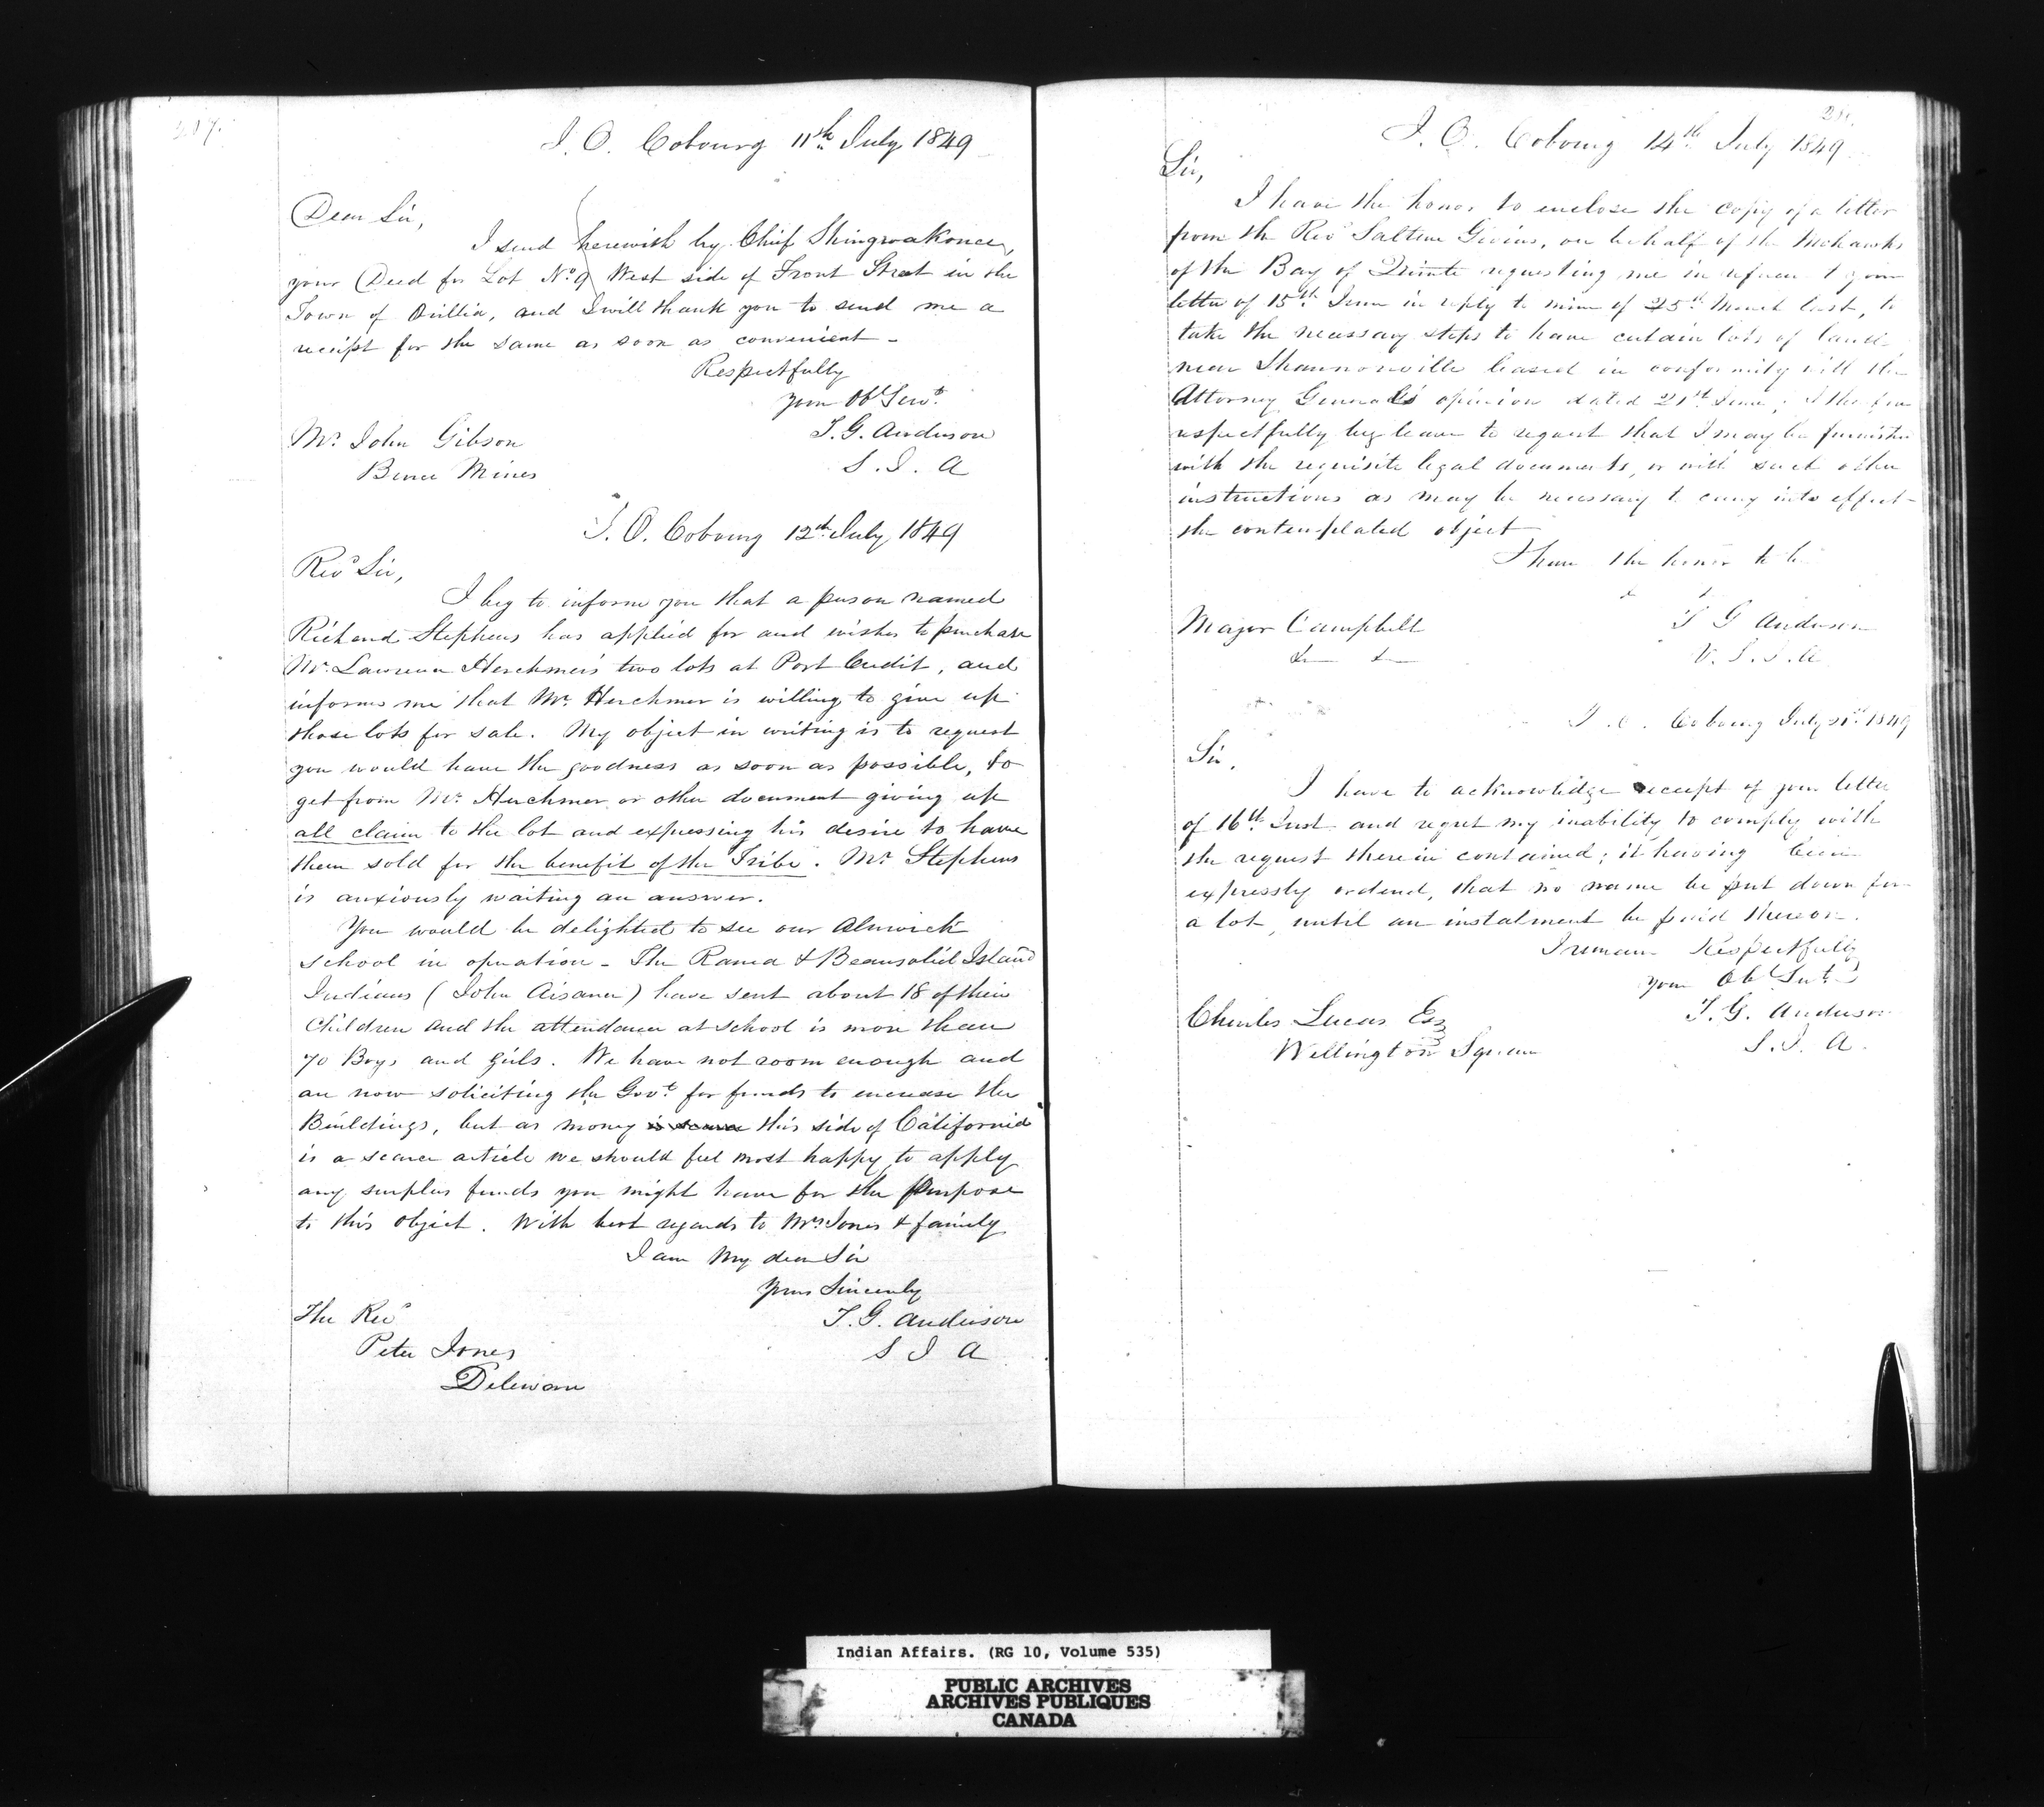 I. O. Cobourg 11th July 1849
Dear Sir,
I send herewith by Chief Shingwakonce,
your Deed for Lot No. 9 West side of Front Street in the
Town of Orillia, and I will thank you to send me a
receipt for the same as soon as convenient -
Respectfully
Your Obt Servt
T. G. Anderson
S. I. A
Mr. John Gibson
Bruce Mines
I. O. Cobourg 12th July 1849
Revd Sir,
I beg to inform you that a person named
Richard Stephens has applied for and wishes to purchase
Mr. Lawrence Herchmer's two lots at Port Credit, and
informs me that Mr. Herchmer is willing to give up
those lots for sale. My object in writing is to request
you would have the goodness as soon as possible, to
get from Mr. Herchmer or other document giving up
all claim to the lot and expressing his desire to have
them sold for the benefit of the Tribe. Mr. Stephens
is anxiously waiting an answer.
You would be delighted to see our Alnwick
School in operation - The Rama & Beausoliel Island
Indians (John Aisance) have sent about 18 of their
Children and the attendance at school is more than
70 Boys and girls. We have not room enough and
are now soliciting the Govt. for funds to increase the
Buildings, but as money is scarce this side of California
is a scarce article we should feel most happy to apply
any surplus funds you might have for the purpose
to this object. With best regards to Mrs. Jones & family
I am My dear Sir
Yours Sincerely
T. G. Anderson
S I A
The Revd
Peter Jones
Deleware
I. O. Cobourg 14th July 1849
Sir,
I have the honor to enclose the copy of a letter
from the Revd Saltern Givins, on behalf of the Mohawks
of the Bay of Quinte requesting me in refference to your
letter of 15th June in reply to mine of 25th March last, to
take the necessary steps to have certain lots of land
near Shannonville leased in conformity with the
Attorney General's opinion dated 21st June; I therefore
respectfully beg leave to request that I may be furnished
with the requisite legal documents, or with such other
instructions as may be necessary to carry into effect
the contemplated object
I have the honor to be
T G Anderson
V. S. I. A
Major Campbell
I. O. Cobourg July 21st 1849
Sir,
I have to acknowledge receipt of your letter
of 16th Inst and regret my inability to comply with
the request therein contained; it having been
expressly ordered, that no name be put down for
a lot, until an instalment be paid thereon.
I remain Respectfully
Your Obt Sert
T. G. Anderson
S. I. A.
Charles Lucas Esq
Wellington Square
Indian Affairs. (RG 10, Volume 535)
PUBLIC ARCHIVES
ARCHIVES PUBLIQUES
CANADA